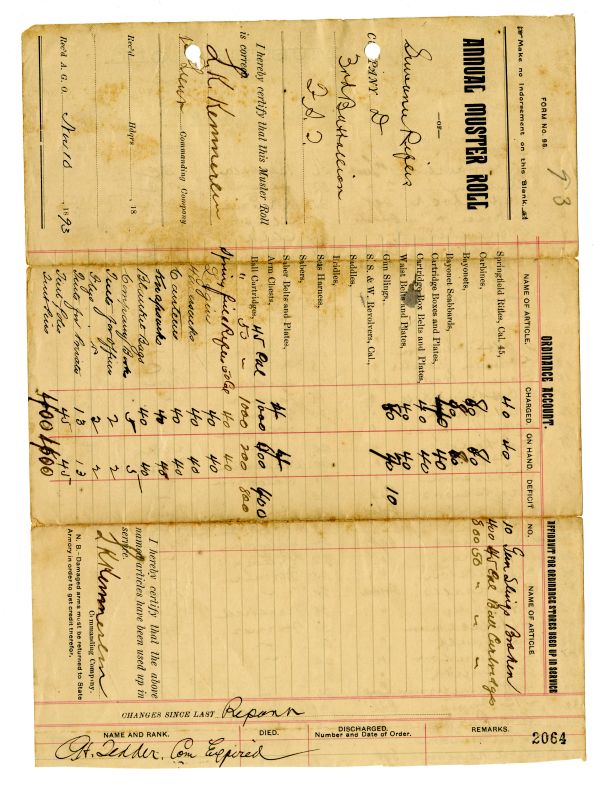 FORM No. 96.
93
☞ Make no Indorsement on this Blank.
ANNUAL MUSTER ROLL
—OF—
Suwanee Rifles
COMPANY D
3rd Battallion
F. S. T.
I hereby certify that this Muster Roll
is correct.
J. K. Kemmerer
Commanding Company
Rec'd. Hdqrs. , 18
Rec'd A. G. O. Nov 10 , 1893
ORDNANCE ACCOUNT.
NAME OF ARTICLE. CHARGED. ON HAND. DEFICIT
Springfield Rifles, Cal. 45, 40 40
Carbines,
Bayonets, 80 80
Bayonet Scabbards, 80 80
Cartridge Boxes and Plates, 40 40
Cartridge Box Belts and Plates, 40 40
Waist Belts and Plates, 40 40
Gun Slings, 50 40 10
S. & W. Revolvers, Cal.,
Saddles,
Bridles,
Sets Harness,
Sabers,
Saber Belts and Plates,
Arm Chests, 4 4
Ball Cartridges, 45 Cal 1000 600 400
" 50 " 1000 200 800
Springfield Rifles 50 Cal 40 40
40 40
Haversacks 40 40
Canteens 40 40
Knapsacks 40 40
Blanket Bags 40 40
Company Books 5 5
Tents for Officers 2 2
Flys " 2 2
Tents for Privates 13 13
Tent Poles 45 45
Tent Pins 400 400
AFFIDAVIT FOR ORDNANCE STORES USED UP IN SERVICE
NO. NAME OF ARTICLE.
10 Gun Slings Broken
400 45 Cal Ball Cartridges
800 50 " " "
I hereby certify that the above
named articles have been used up in
service.
J K Kemmerer
Commanding Company.
N. B.—Damaged arms must be returned to State
Armory in order to get credit therefor.
CHANGES SINCE LAST Report
NAME AND RANK. DIED. DISCHARGED. Number and Date of Order. REMARKS.
2064
Tedder, Com Expired